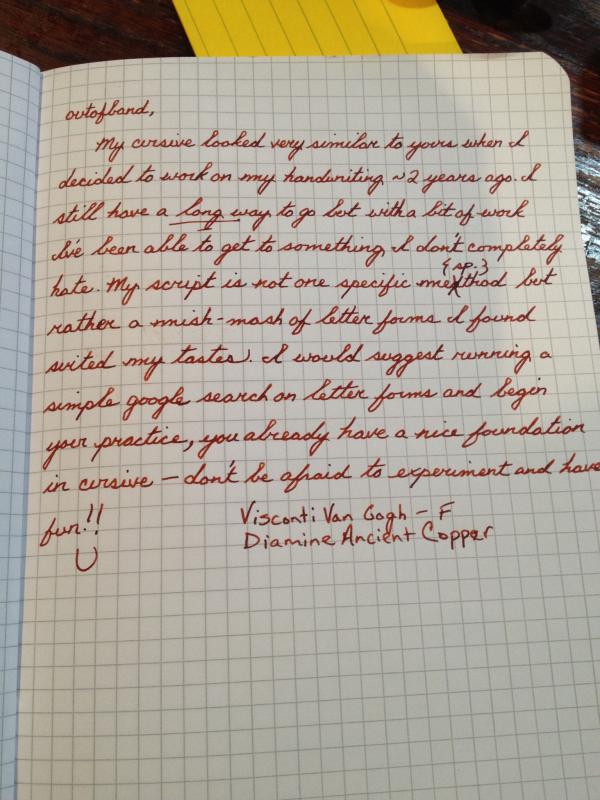 outofband,
My cursive looked very similar to yours when I
decided to work on my handwriting ~2 years ago. I
still have a long way to go but with a bit of work
I've been able to get to something I don't completely
{sp.}
hate. My script is not one specific method but
rather a mish-mash of letter forms I found
suited my tastes. I would suggest running a
simple google search on letter forms and begin
your practice, you already have a nice foundation
in cursive – don't be afraid to experiment and have
fun!!
Visconti Van Gogh - F
Diamine Ancient Copper